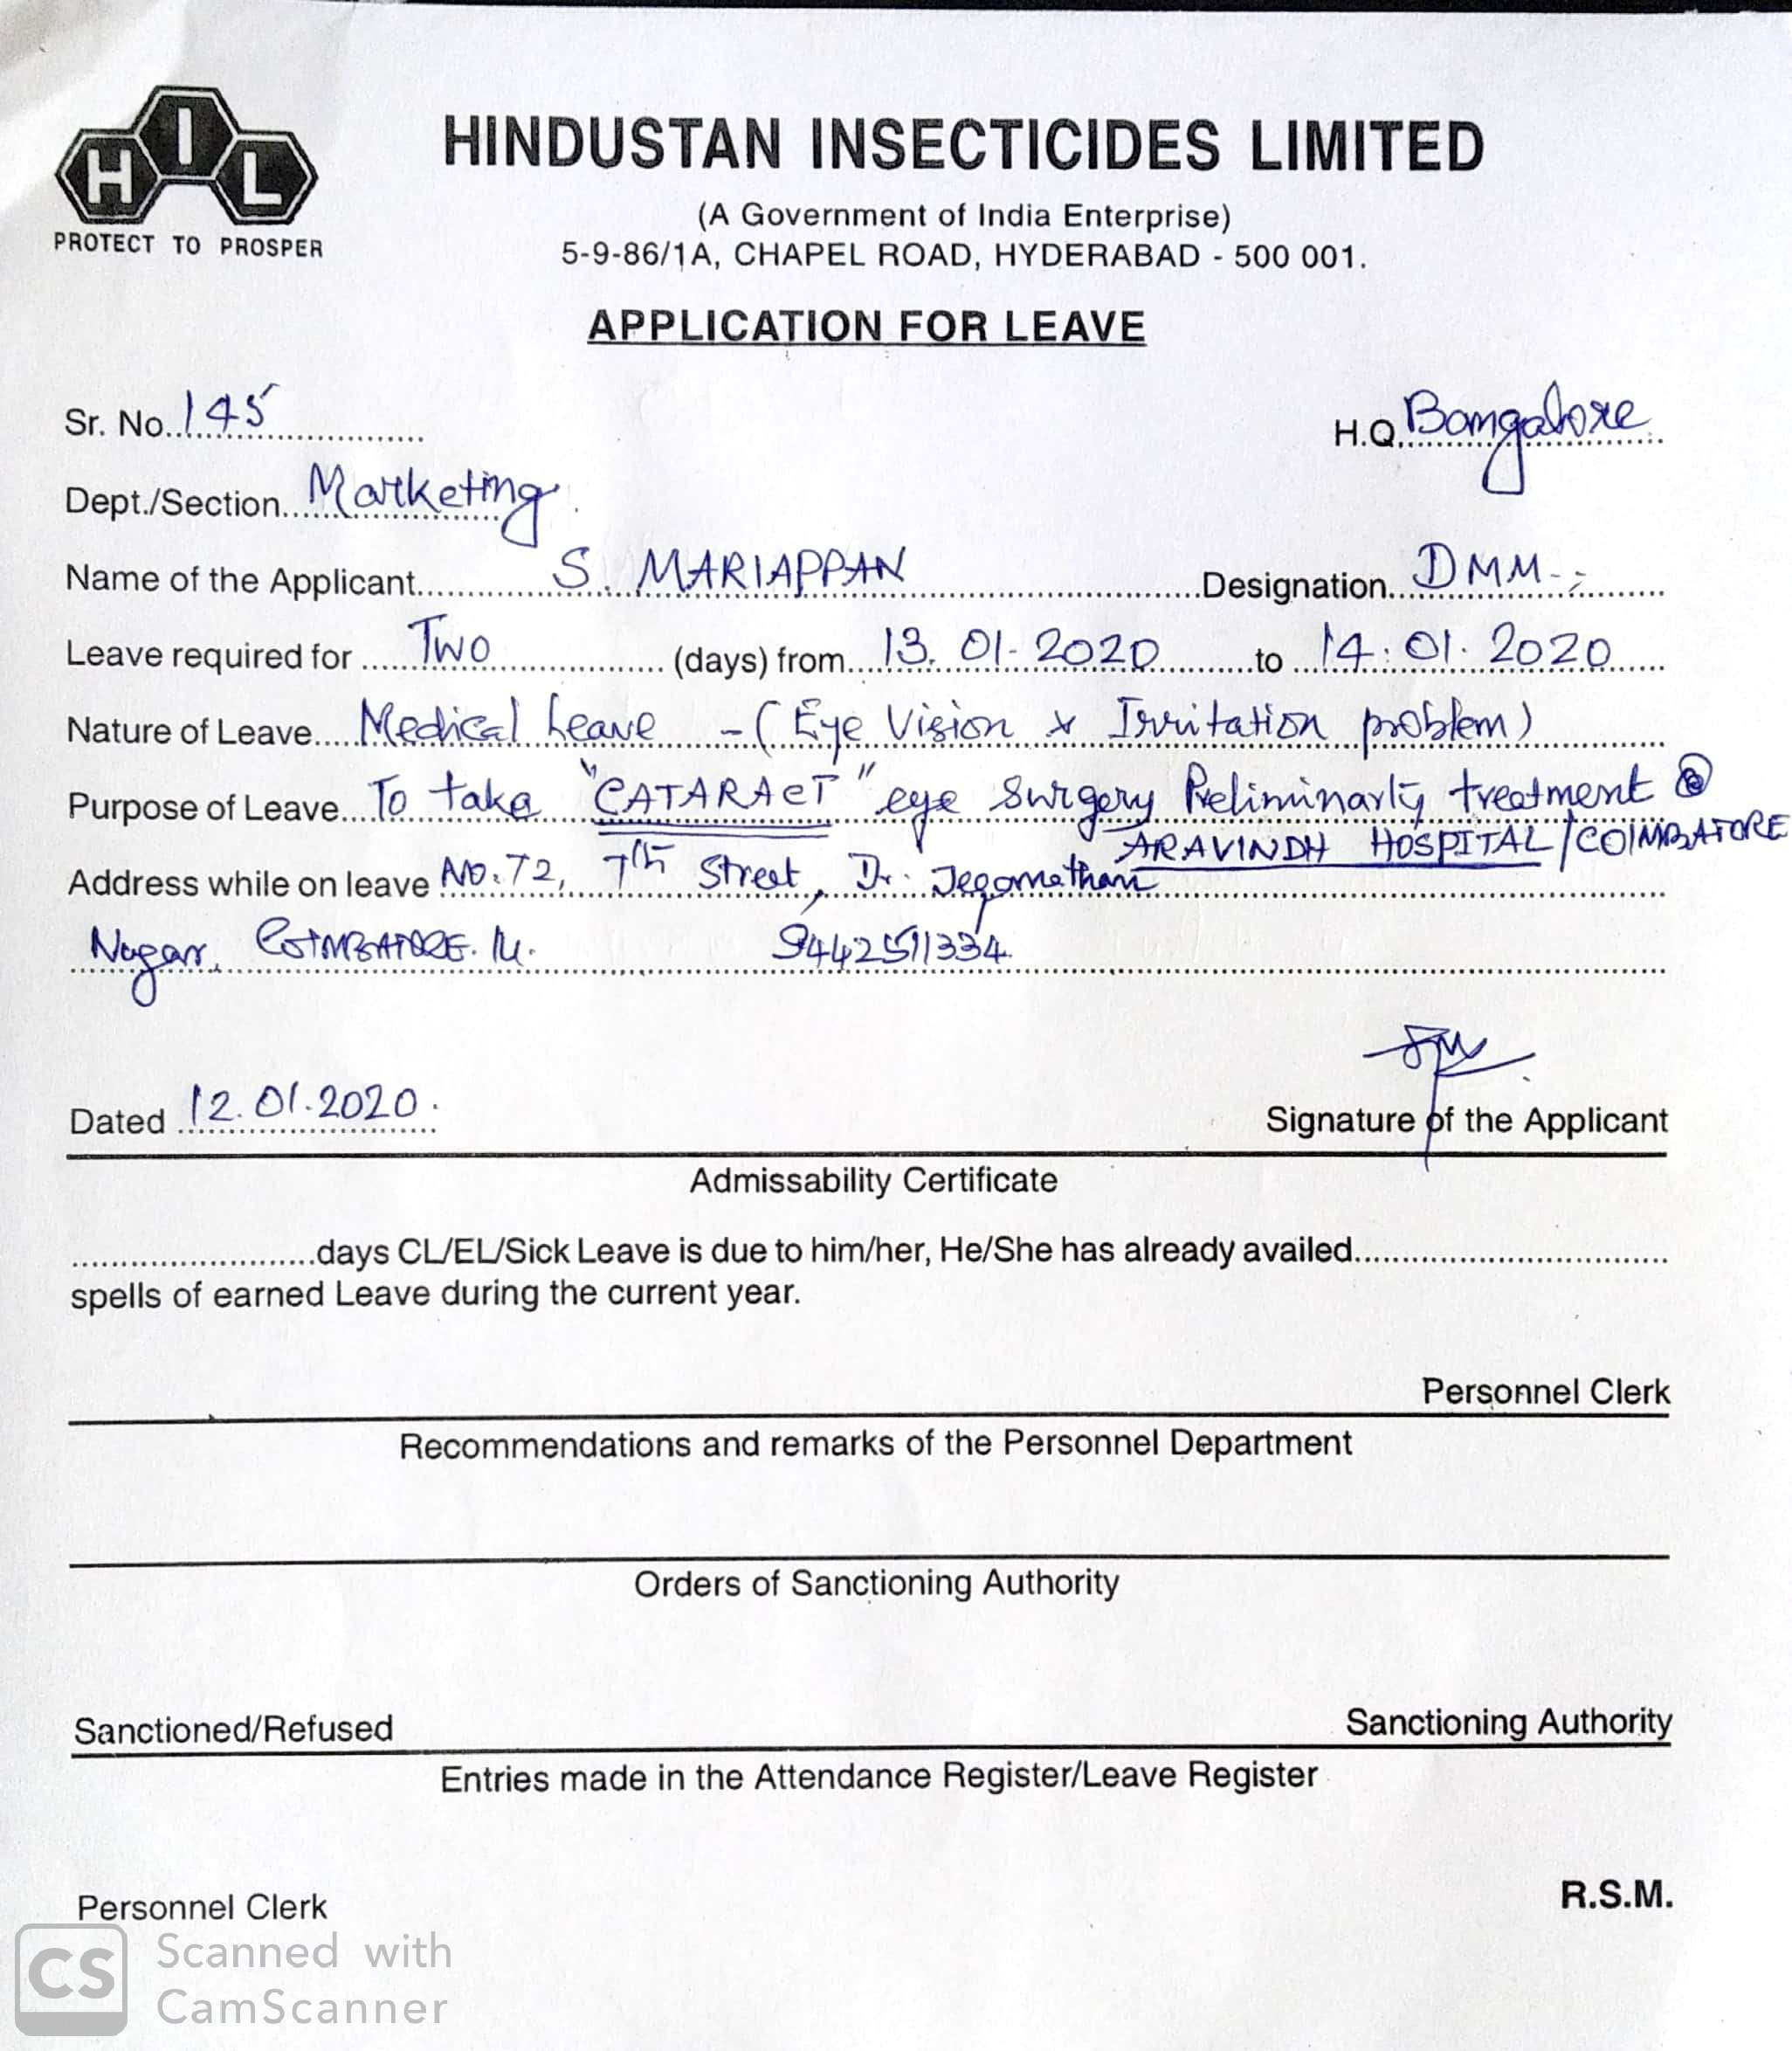 HIL
PROTECT TO PROSPER
HINDUSTAN INSECTICIDES LIMITED
(A Government of India Enterprise)
5-9-86/1A, CHAPEL ROAD, HYDERABAD - 500 001.
APPLICATION FOR LEAVE
Sr. No. 145 H.Q. Bangalore
Dept./Section Marketing
Name of the Applicant S. MARIAPPAN Designation DMM
Leave required for Two (days) from 13.01.2020 to 14.01.2020
Nature of Leave Medical Leave - (Eye Vision & Irritation problem)
Purpose of Leave To take "CATARACT" eye Surgery Preliminarly treatment @
ARAVINDH HOSPITAL/COIMBATORE
Address while on leave NO.72, 7th Street, Dr. Jeganathan
Nagar, COIMBATORE. 14. 9442511334.
Dated 12.01.2020. Signature of the Applicant
Admissability Certificate
days CL/EL/Sick Leave is due to him/her, He/She has already availed
spells of earned Leave during the current year.
Personnel Clerk
Recommendations and remarks of the Personnel Department
Orders of Sanctioning Authority
Sanctioned/Refused Sanctioning Authority
Entries made in the Attendance Register/Leave Register
Personnel Clerk R.S.M.
CS Scanned with
CamScanner